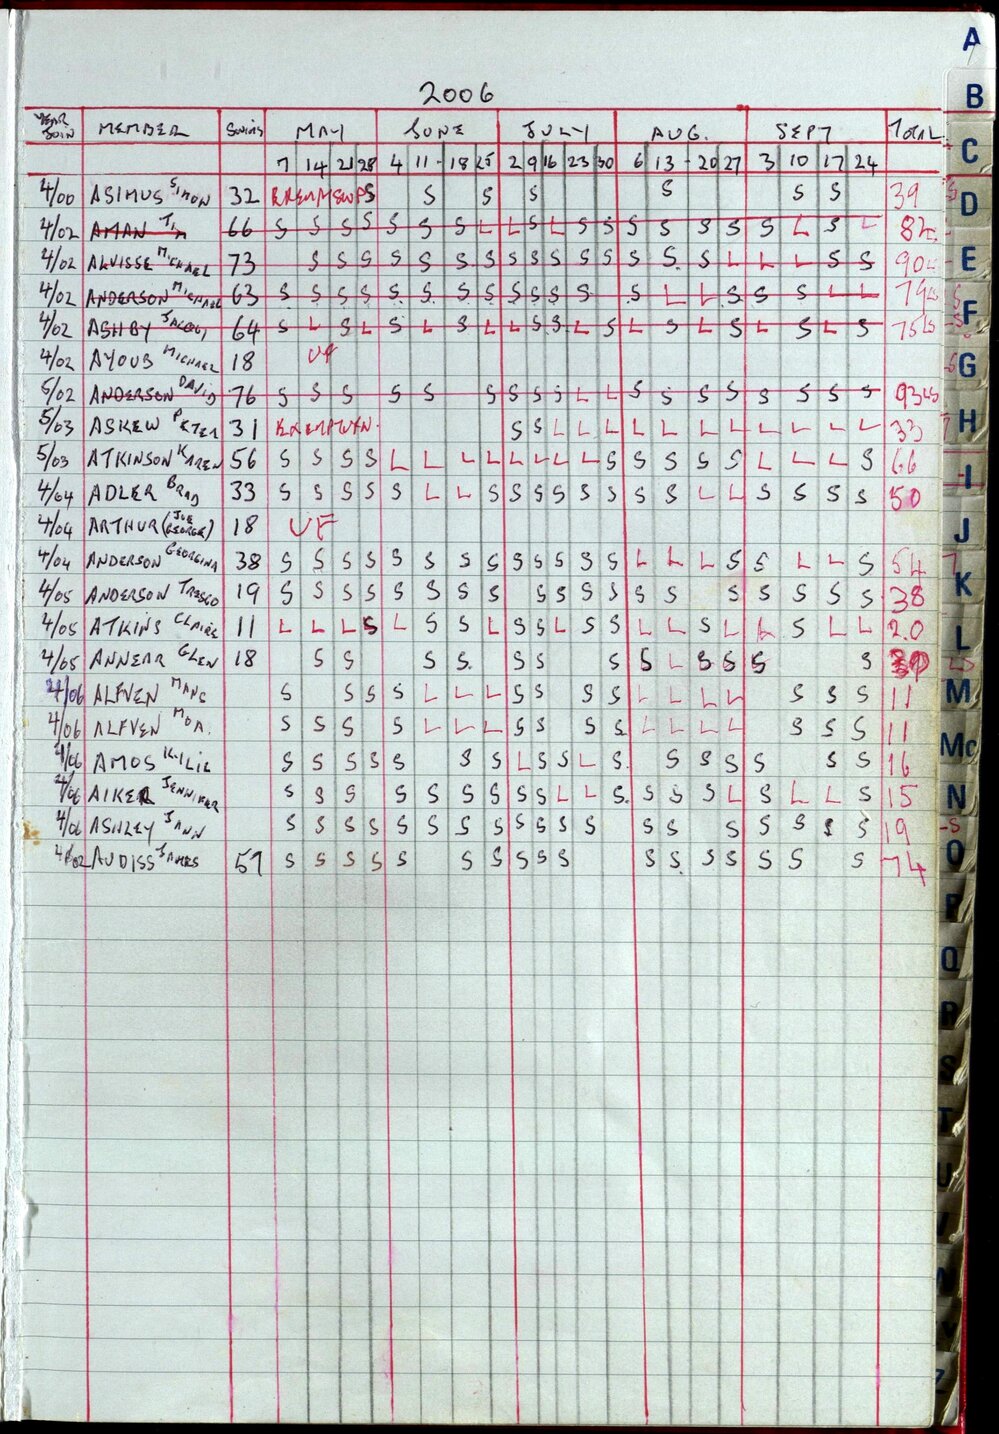 2006
YEAR JOIN MEMBER SWIMS MAY JUNE JULY AUG. SEPT TOTAL
7 14 21 28 4 11 - 18 25 2 9 16 23 30 6 13 - 20 27 3 10 17 24
4/00 ASIMUS SIMON 32 S S S S S S S 39
4/02 AMAN JIM 66 S S S S S S S L L S L S S S S S S S L S L 82
4/02 ALVISSE MICHAEL 73 S S S S S S S S S S S S S S S L L L S S 90
4/02 ANDERSON MICHAEL 63 S S S S S S S S S S S S S L L S S S L L 79
4/02 ASHBY 64 S L S L S L S L L S S L S L S L S L S L S 75
4/02 AYOUB MICHAEL 18 UF
5/02 ANDERSON DAVID 76 S S S S S S S S S L L S S S S S S S S 93
5/03 ASKEW PETER 31 S S L L L L L L L L L L L 33
5/03 ATKINSON KAREN 56 S S S S L L L L L L L L S S S S S L L L S 66
4/04 ADLER BRAD 33 S S S S S L L S S S S S S S S L L S S S S 50
4/04 ARTHUR (JOE GEORGE) 18 UF
4/04 ANDERSON GEORGINA 38 S S S S S S S S S S S S S L L L S S L L S 54
4/05 ANDERSON 19 S S S S S S S S S S S S S S S S S S S 38
4/05 ATKINS CLAIRE 11 L L L S L S S L S S L S S L L S L L S L L 20
4/05 ANNEAR GLEN 18 S S S S S S S S L S S S S
4/06 ALFVEN MANS S S S S L L L S S S S L L L L S S S 11
4/06 ALFVEN MOA. S S S S L L L S S S S L L L L S S S 11
4/06 AMOS S S S S S S S L S S L S S S S S S S S 16
4/06 AIKER JENNIFER S S S S S S S S S L L S S S S L S L L S 15
4/06 ASHLEY JANN S S S S S S S S S S S S S S S S S S S 19
4/02 AUDISS JAMES 57 S S S S S S S S S S S S S S S S S 74
A
B
C
D
E
F
G
H
I
J
K
L
M
Mc
N
O
P
Q
R
S
T
U